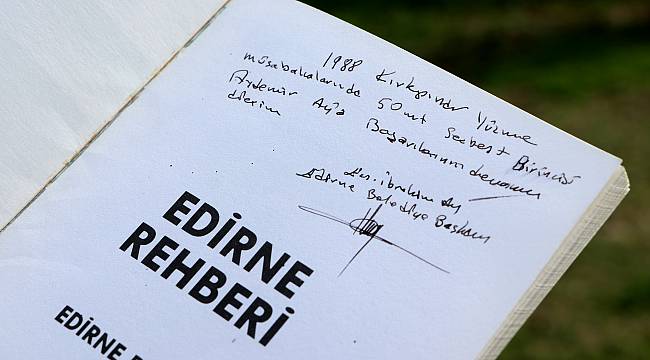 1988 Kırkpınar Yüzme
müsabakalarında 50 mt Serbest Birincisi
Aydemir Ay'a Başarılarının devamını
dilerim
Av. İbrahim Ay
Edirne Belediye Başkanı
EDİRNE
REHBERİ
EDİRNE